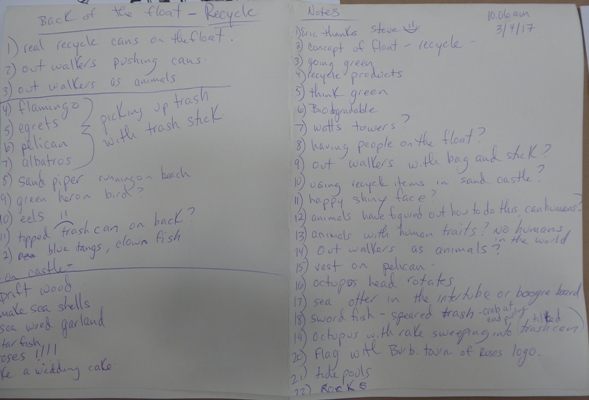 Back of the float - Recycle
1) real recycle cans on the float.
2) out walkers pushing cans.
3) out walkers as animals
4) flamingo
5) egrets
6) pelican
7) albatros
picking up trash
with trash stick
8) sand piper running on beach
9) green heron bird?
10) eels !!
11) tipped trash can on back?
2) blue tangs, clown fish
on castle -
Drift wood
make sea shells
sea weed garland
tar fish
oses !!!!
ke a wedding cake
Notes
10:06am
3/4/17
thanks Steve
2) concept of float - recycle -
3) going green
4) recycle products
5) think green
6) Biodegradable
7) watts towers?
8) having people on the float?
9) out walkers with bag and stick?
10) using recycle items in sand castle?
11) happy shiny face?
12) animals have figured out how to do this, can humans?
13) animals with human traits? no humans
in the world
14) out walkers as animals?
15) vest on pelican -
16) octopus head rotates
17) sea otter in the intertube or boogie board
18) sword fish - speared trash -
19) octopus with rake sweeping into trash can
20) flag with Burb. tourn of Roses logo.
21) tide pools
22) Rocks